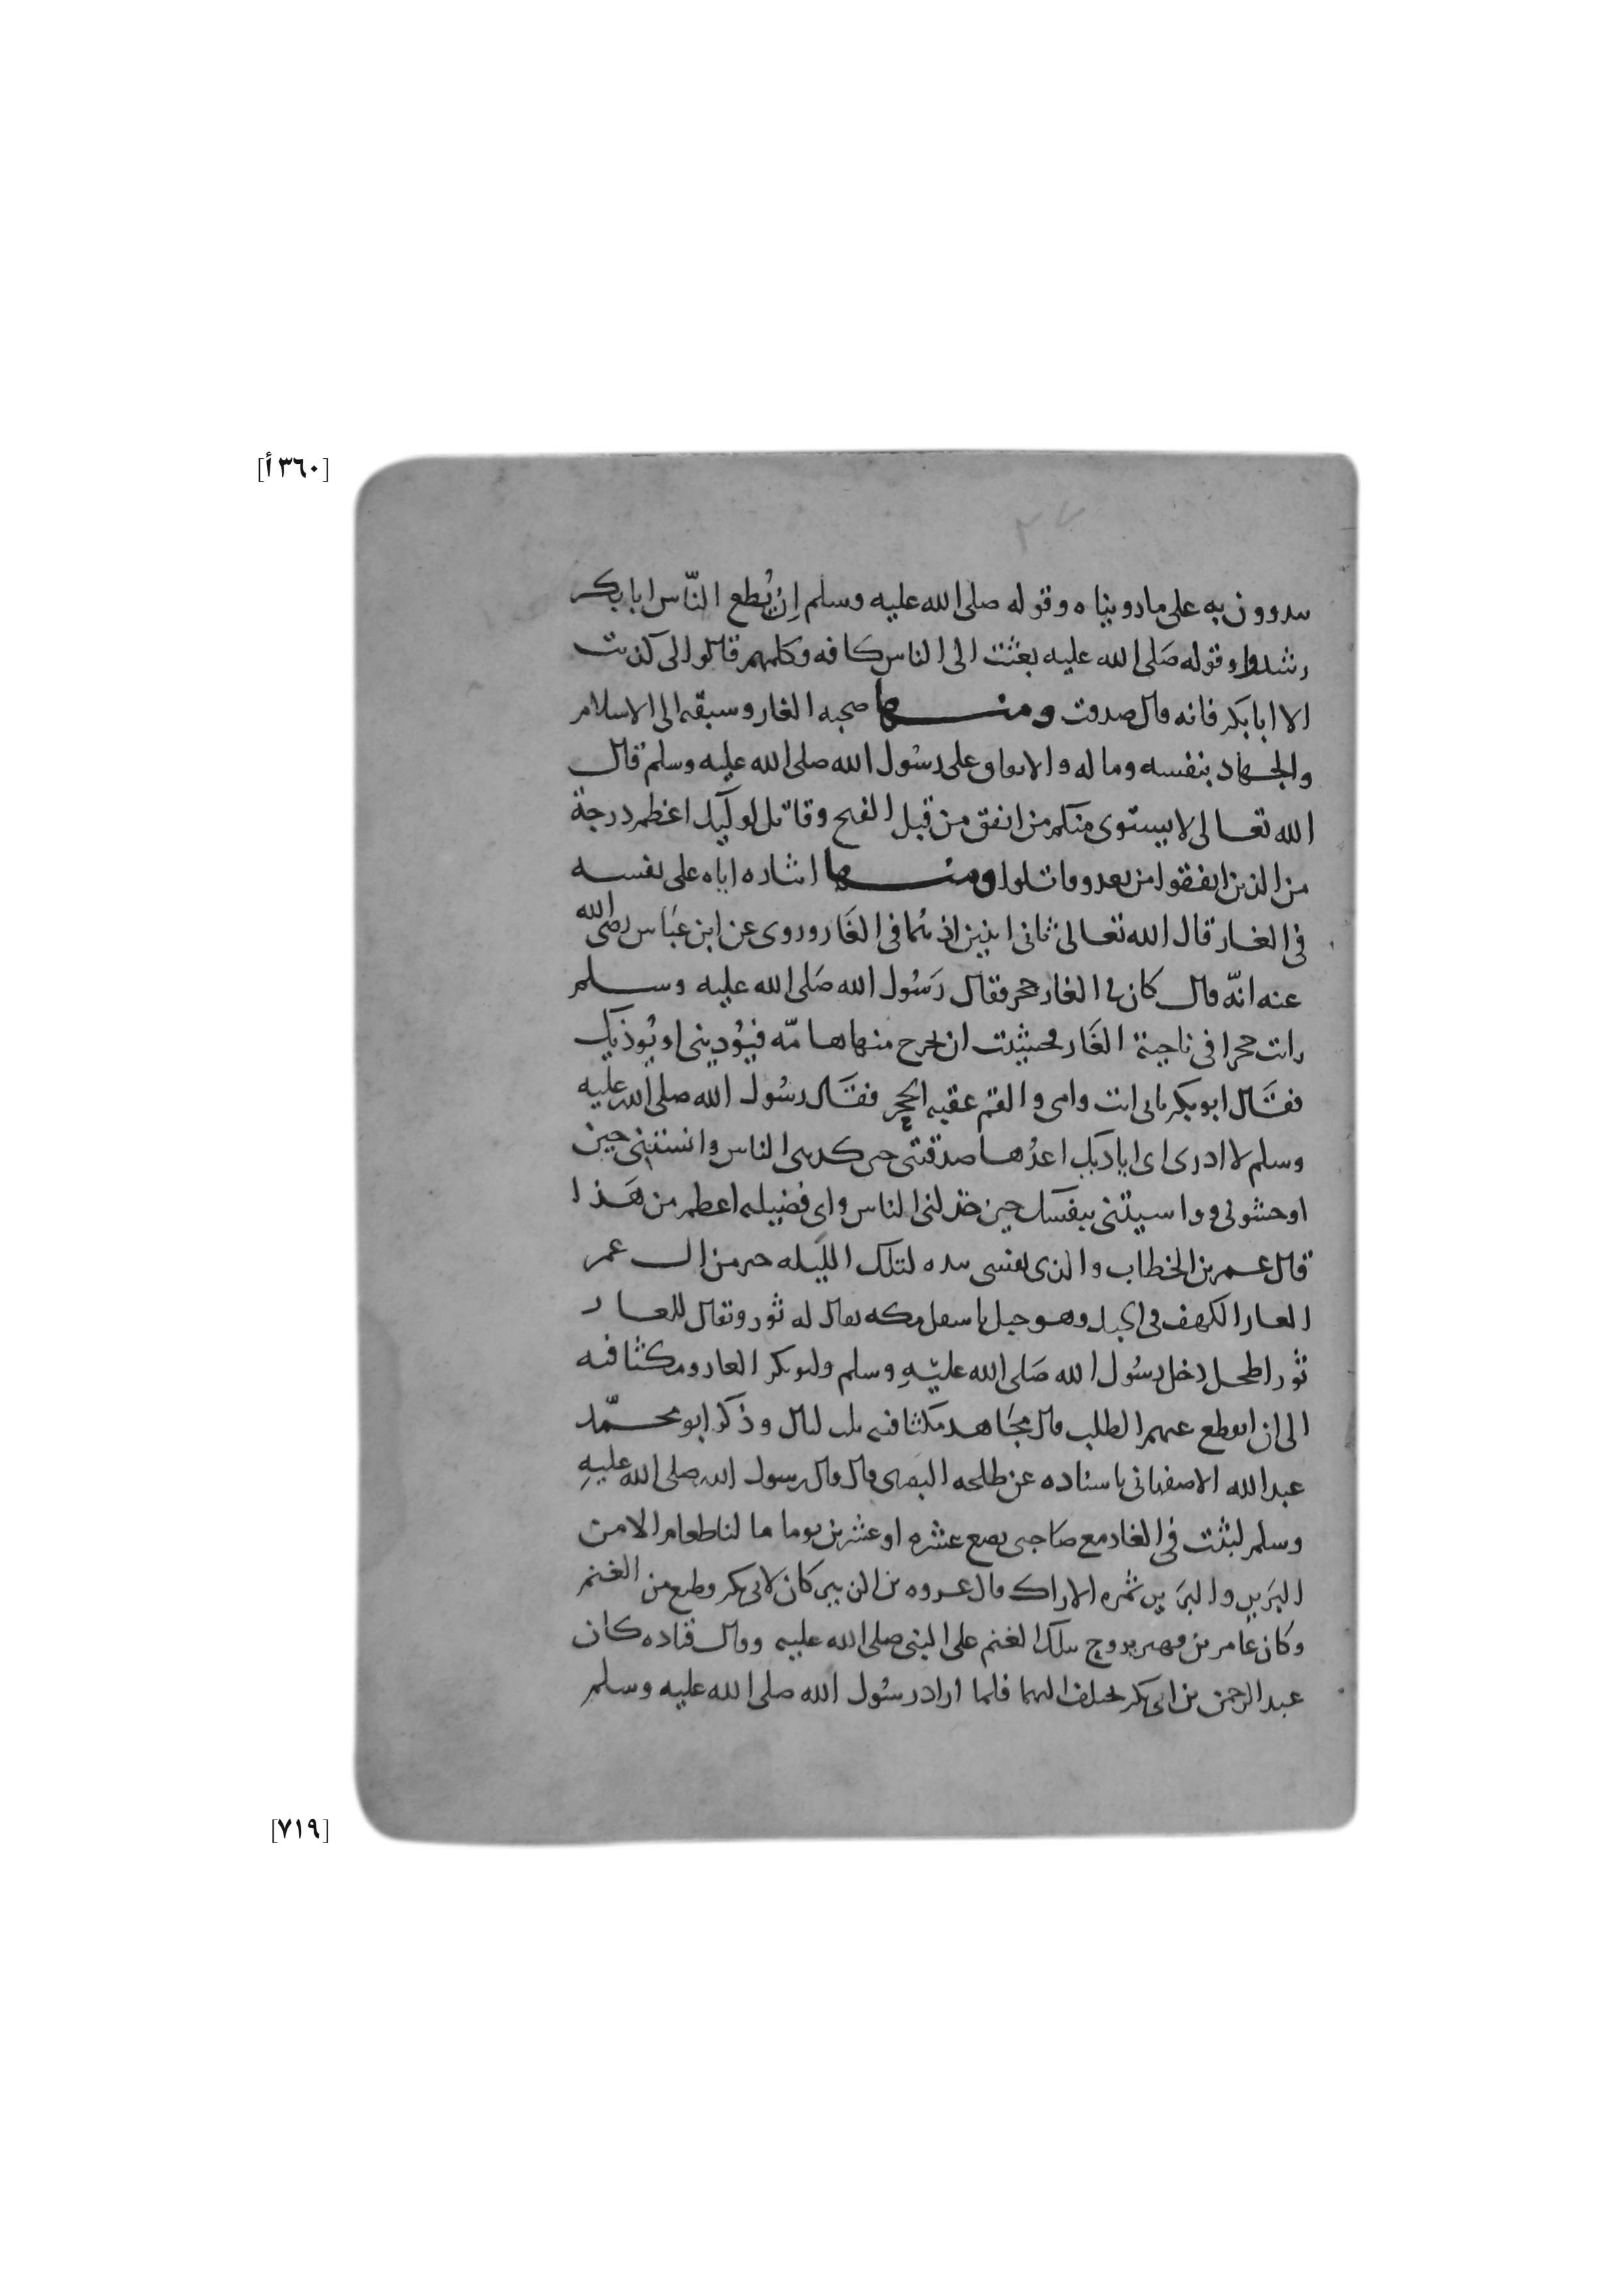 [٣٦٠ أ]
٢٧
به على ما رويناه وقوله صلى الله عليه وسلم إن يُطع النّاس ابا بكر
رشدوا وقوله صَلى الله عليه بعثت الى الناس كافه وكلهم قالوا لى كذبت
الا ابا بكر فانه قال صدقت ومنها صحبه الغار وسبقه الى الاسلام
والجهاد بنفسه وماله والانفاق على رسُول الله صلى الله عليه وسلم قال
الله تعالى لا يستوى منكم من انفق من قبل الفتح وقاتل اوليك اعظم درجة
من الذين انفقوا من بعد وقاتلوا ومنها ايثاره اياه على نفسه
فى الغار قال الله تعالى ثانى اثنين اذ هُما فى الغَار وروى عن ابن عبَاس رضى الله
عنه انّه قال كان فى الغار جحر فقال رَسُول الله صَلى الله عليه وسلم
رايت جحرا فى ناحية الغَار فخشيت ان يخرج منها هامّه فيُؤذينى او يُوذيك
فقَال ابو بكر بابى انت وامى والقم عقبه الجحر فقَال رسُول الله صلى الله عليه
وسلم لا ادرى اى اياديك اعدُها صدقتنى حين كذبنى الناس وانستنى حين
اوحشونى وواسيتنى بنفسك حين خذلنى الناس واى فضيله اعظم من هَذا
قال عمر بن الخطاب والذى نفسى بيده لتلك الليله خير من ال عمر
الغار الكهف فى الجبل وهو جبل باسفل مكه يقال له ثور ويقال للغار
ثور اطحل دخل رسُول الله صَلى الله عليْهِ وسلم وابو بكر الغار ومكثا فيه
الى ان انقطع عنهم الطلب قال مجَاهد مكثا فيه ثلث ليال وذكر ابو محمّد
عبد الله الاصفهانى باسناده عن طلحه البصرى قال قال رسول الله صلى الله عليهِ
وسلم لبثت فى الغار مع صَاحبى بضع عشره او عشرين يوما ما لنا طعام الا من
البَرير والبَرير ثمره الاراك قال عروه بن الزبير كان لابى بكر قطيع من الغنم
وكان عَامر بن فهيره يروح بتلك الغنم على النبى صلى الله عليه وقال قتاده كان
عبد الرحمن بن ابى بكر يختلف اليهما فلما اراد رسُول الله صلى الله عليه وسلم
[٧١٩]